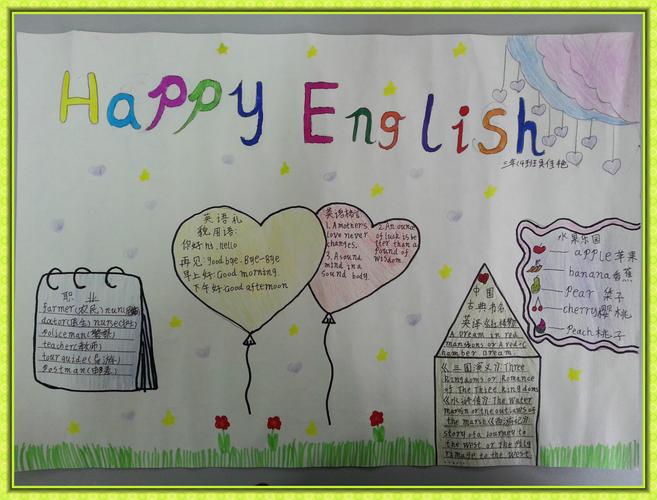 Happy English
三年(4)班
英语礼
貌用语:
你好:hi. hello
再见:goodbye. Bye-Bye
早上好:Good morning.
下午好:Good afternoon
英语格言
1. A mother's
love never
changes.
2. An ounce
of luck is be
tter than a
pound of
wisdom
3. A sound
mind in a
sound body.
职 业
farmer(农民)
policeman(警察)
teacher(教师)
tour guide(导游)
postman
水果乐园
apple 苹果
banana 香蕉
pear 梨子
cherry 樱桃
peach 桃子
中国
古典书名
英语《红楼梦》
A dream in red
mansions or A red-C
hamber Dream.
《三国演义》Three
Kingdoms or Romance
of The Three Kingdoms
《水浒传》The Water
margin or the outlaws of
the marsh《西游记》
story of a journey to
the west or the pilg
rimage to the west